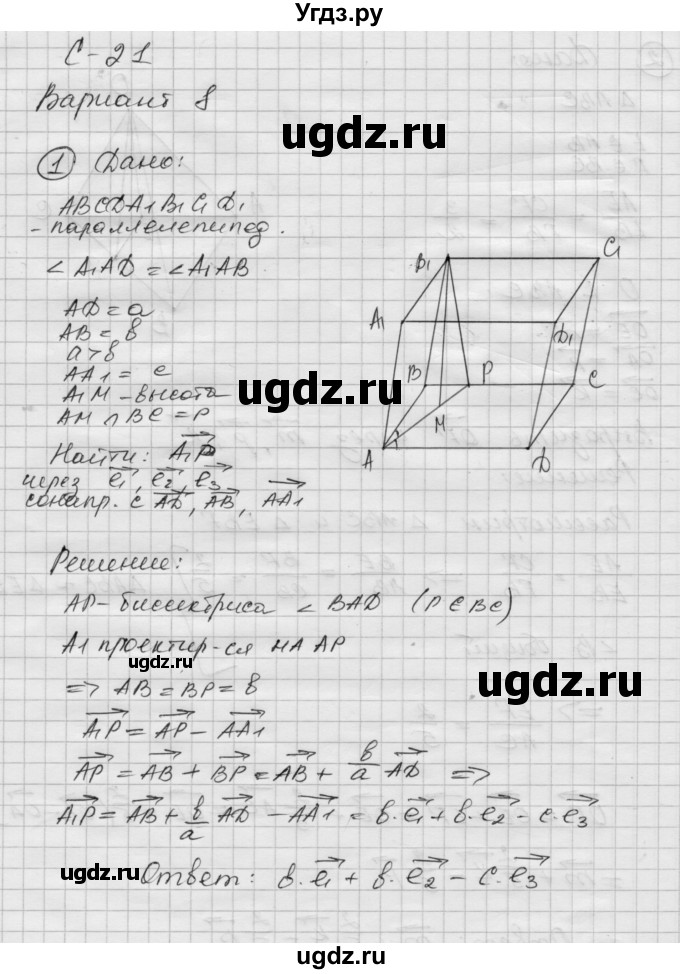 Угдз.ру
С-21
Вариант 8
ugdz.ru
1 Дано:
ABCDA1B1C1D1
- параллелепипед.
∠A1AD = ∠A1AB
AD = a
AB = в
a > в
AA1 = c
A1M - высота
AM ∩ BC = P
Найти: A1P
через e1, e2, e3
сонапр. с AD, AB, AA1
B1
C1
A1
D1
B
P
C
M
A
D
ugdz.ru
ugdz.ru
Решение:
AP - биссектриса ∠BAD (P∈BC)
A1 проектир-ся на AP
ugdz.ru
ugdz.ru
=> AB = BP = в
A1P = AP - AA1
AP = AB + BP = AB + в/a AD =>
A1P = AB + в/a AD - AA1 = в·e1 + в·e2 - c·e3
ugdz.ru
ugdz.ru
Ответ: в·e1 + в·e2 - c·e3
ugdz.ru